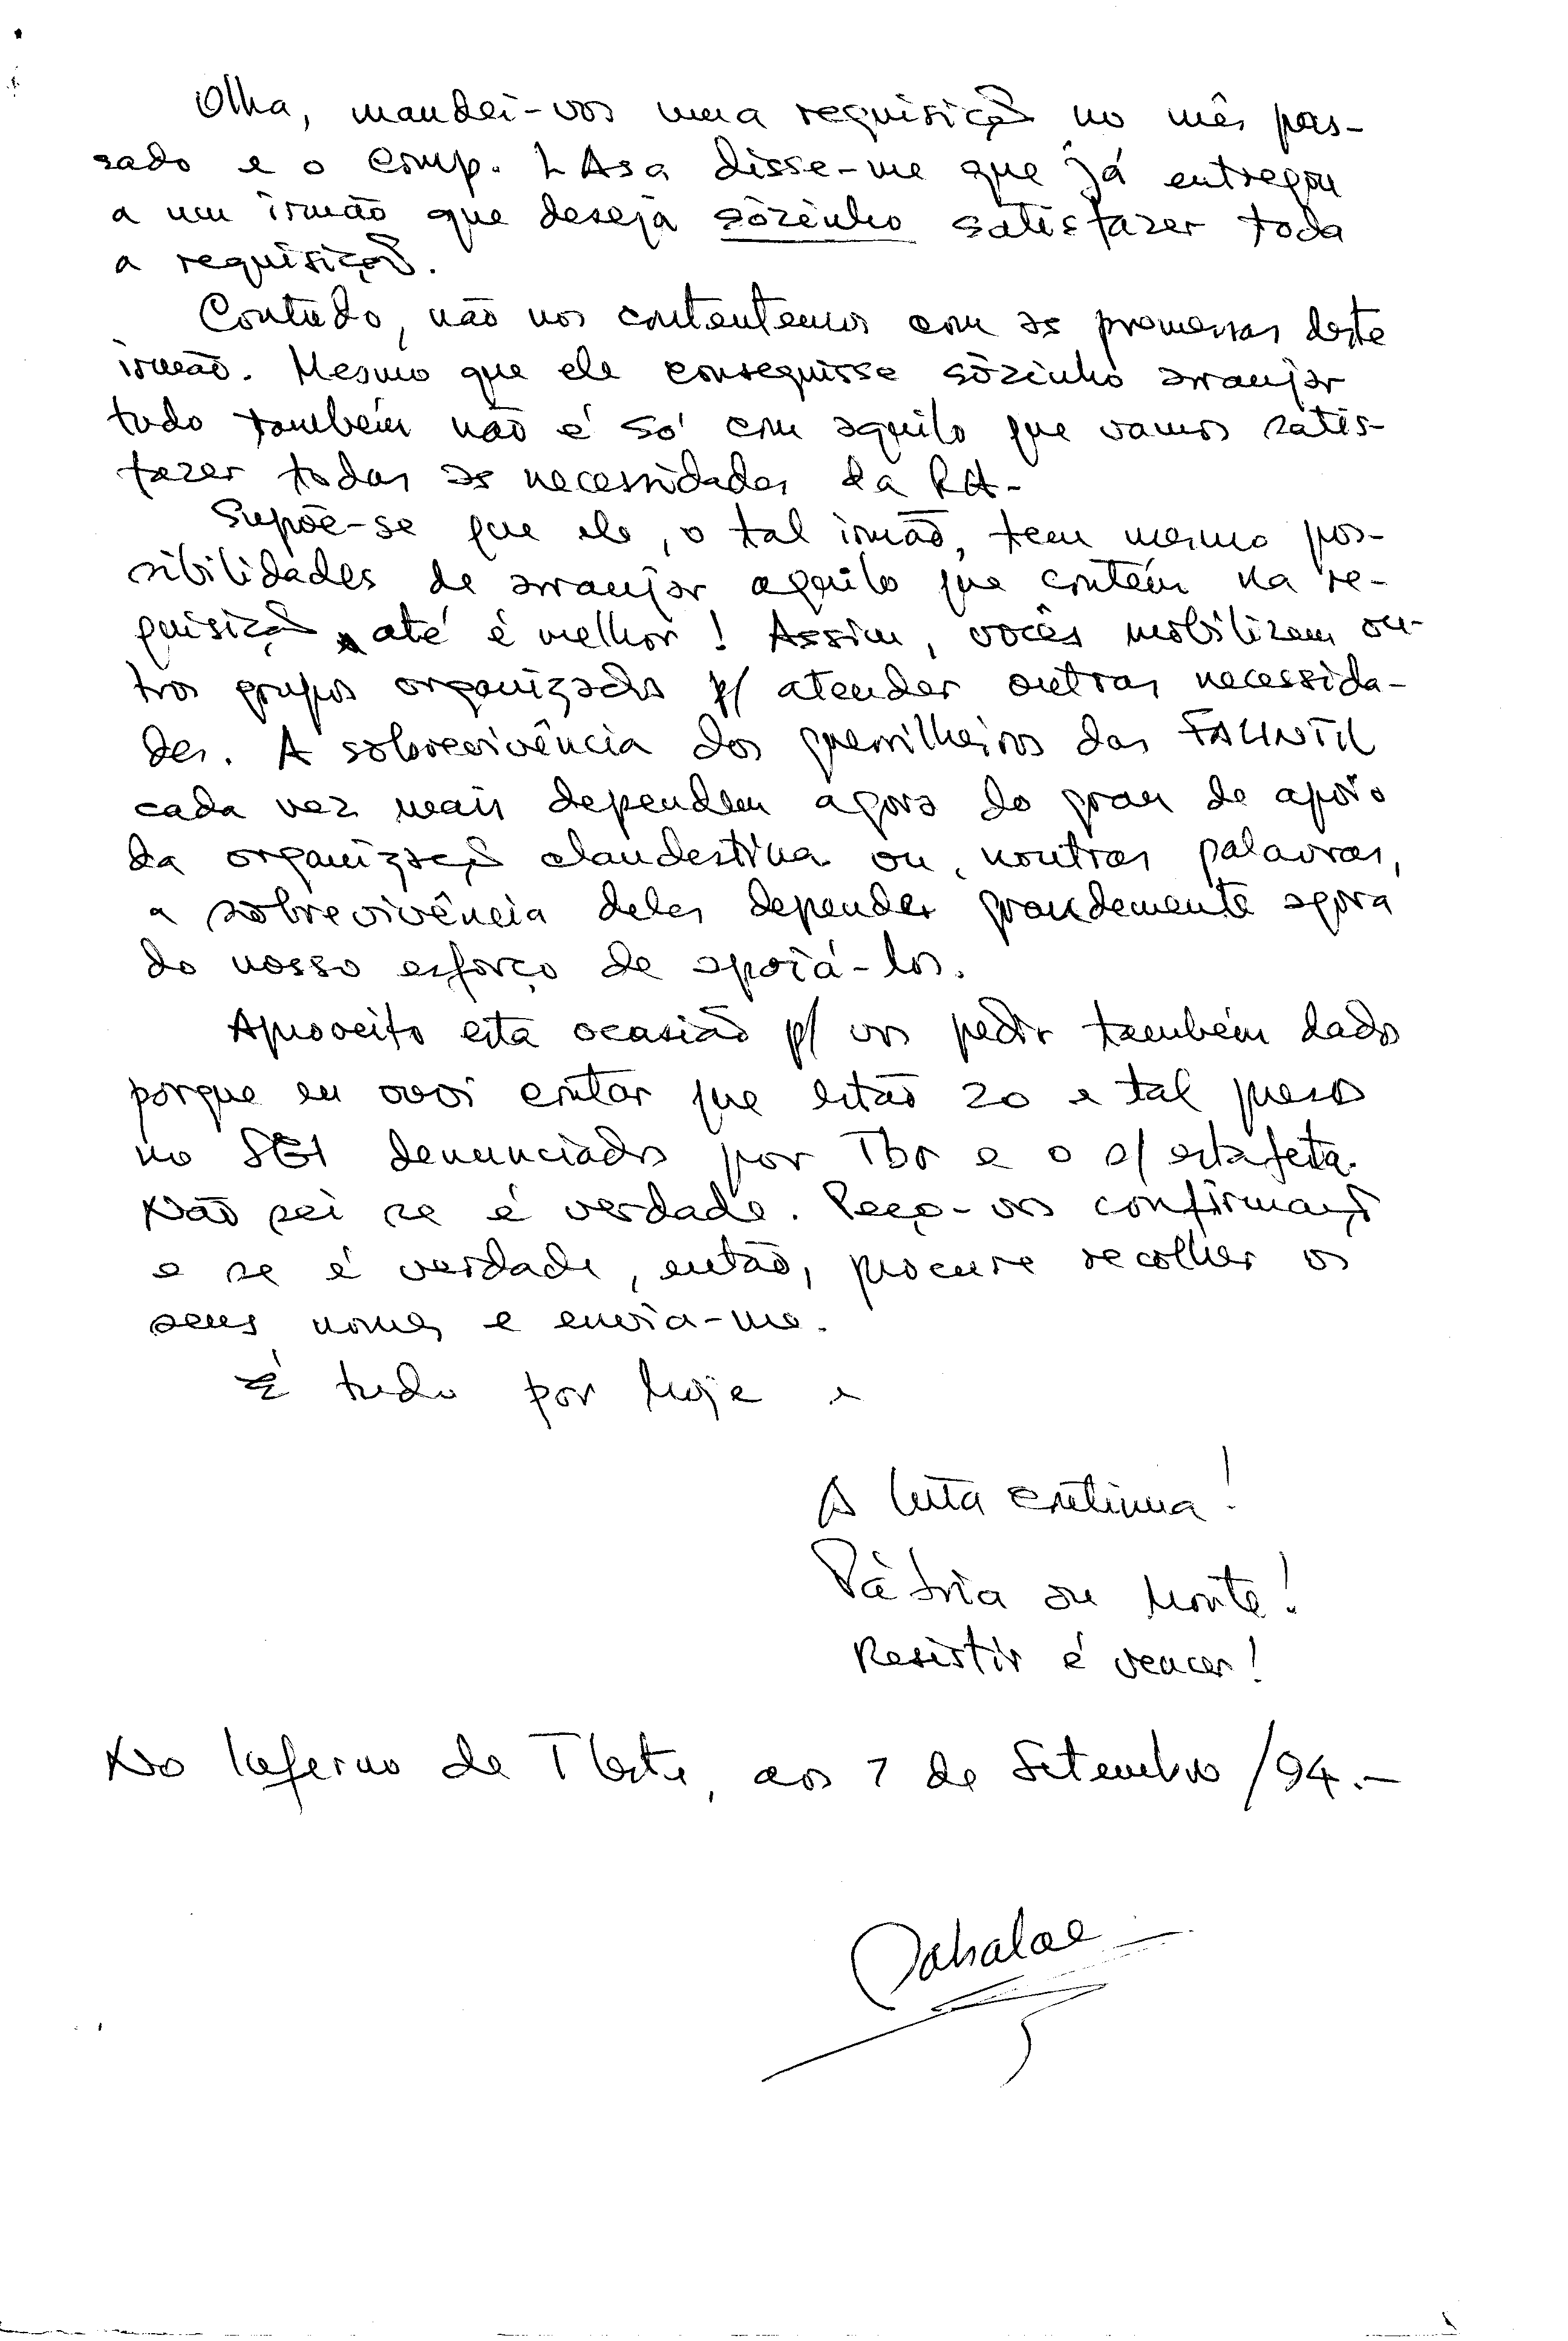 Olha, mandei-vos uma requisição no mês pas-
sado e o comp. L Asa disse-me que já entregou
a um irmão que deseja sòzinho satisfazer toda
a requisição.
Contudo, não nos contentemos com as promessas deste
irmão. Mesmo que ele conseguisse sòzinho arranjar
tudo também não é só com aquilo que vamos satis-
fazer todas as necessidades da RA-
Supõe-se que ele, o tal irmão, tem mesmo pos-
sibilidades de arranjar aquilo que contém na re-
quisição, até é melhor! Assim, vocês mobilizem ou-
tros grupos organizados p/ atender outras necessida-
des. A sobrevivência dos guerrilheiros das FALINTIL
cada vez mais dependem agora do grau de apoio
da organização clandestina ou, noutras palavras,
a sobrevivência deles depender grandemente agora
do nosso esforço de apoiá-los.
Aproveito esta ocasião p/ vos pedir também dados
porque eu ouvi contar que estão 20 e tal presos
no SGI denunciados por Tbr e o s/ estafeta.
Não sei se é verdade. Peço-vos confirmaçã
e se é verdade, então, procure recolher os
seus nomes e envia-me.
É tudo por hoje e
A luta continua!
Pàtria ou Morte!
Resistir é vencer!
No Inferno de T Leste, aos 7 de Setembro /94.-